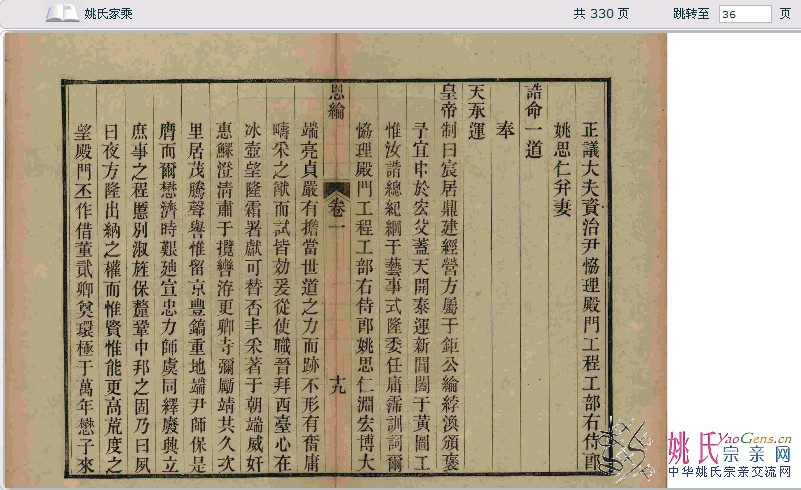 姚氏家乘
共 330 页
跳转至 36 页
正議大夫資治尹恊理殿門工程工部右侍郎
姚思仁并妻
誥命一道
奉
天承運
皇帝制曰宸居鼎建經營方屬于鉅公綸綍渙頒褒
予宜申於宏父蓋天開泰運新閶闔于黃圖工
惟汝諧總紀綱于藝事式隆委任庸霈訓詞爾
恊理殿門工程工部右侍郎姚思仁淵宏博大
恩綸
卷一
十九
端亮貞嚴有擔當世道之力而跡不形有奮庸
疇采之猷而試皆効爰從使職晉拜西臺心在
冰壺望隆霜署獻可替否丰采著于朝端威奸
惠鰥澄清肅于攬轡洊更卿寺彌勵靖共久次
里居茂騰聲譽惟留京豐鎬重地端尹師保是
膺而爾懋濟時艱廸宣忠力師虞同繹廢興立
庶事之程慝别淑旌保釐鞏中邦之固乃曰夙
曰夜方隆出納之權而惟賢惟能更高荒度之
望殿門丕作借董貳卿奠環極于萬年懋子來
姚氏 YaoGens.cn
宗亲网
中华姚氏宗亲交流网